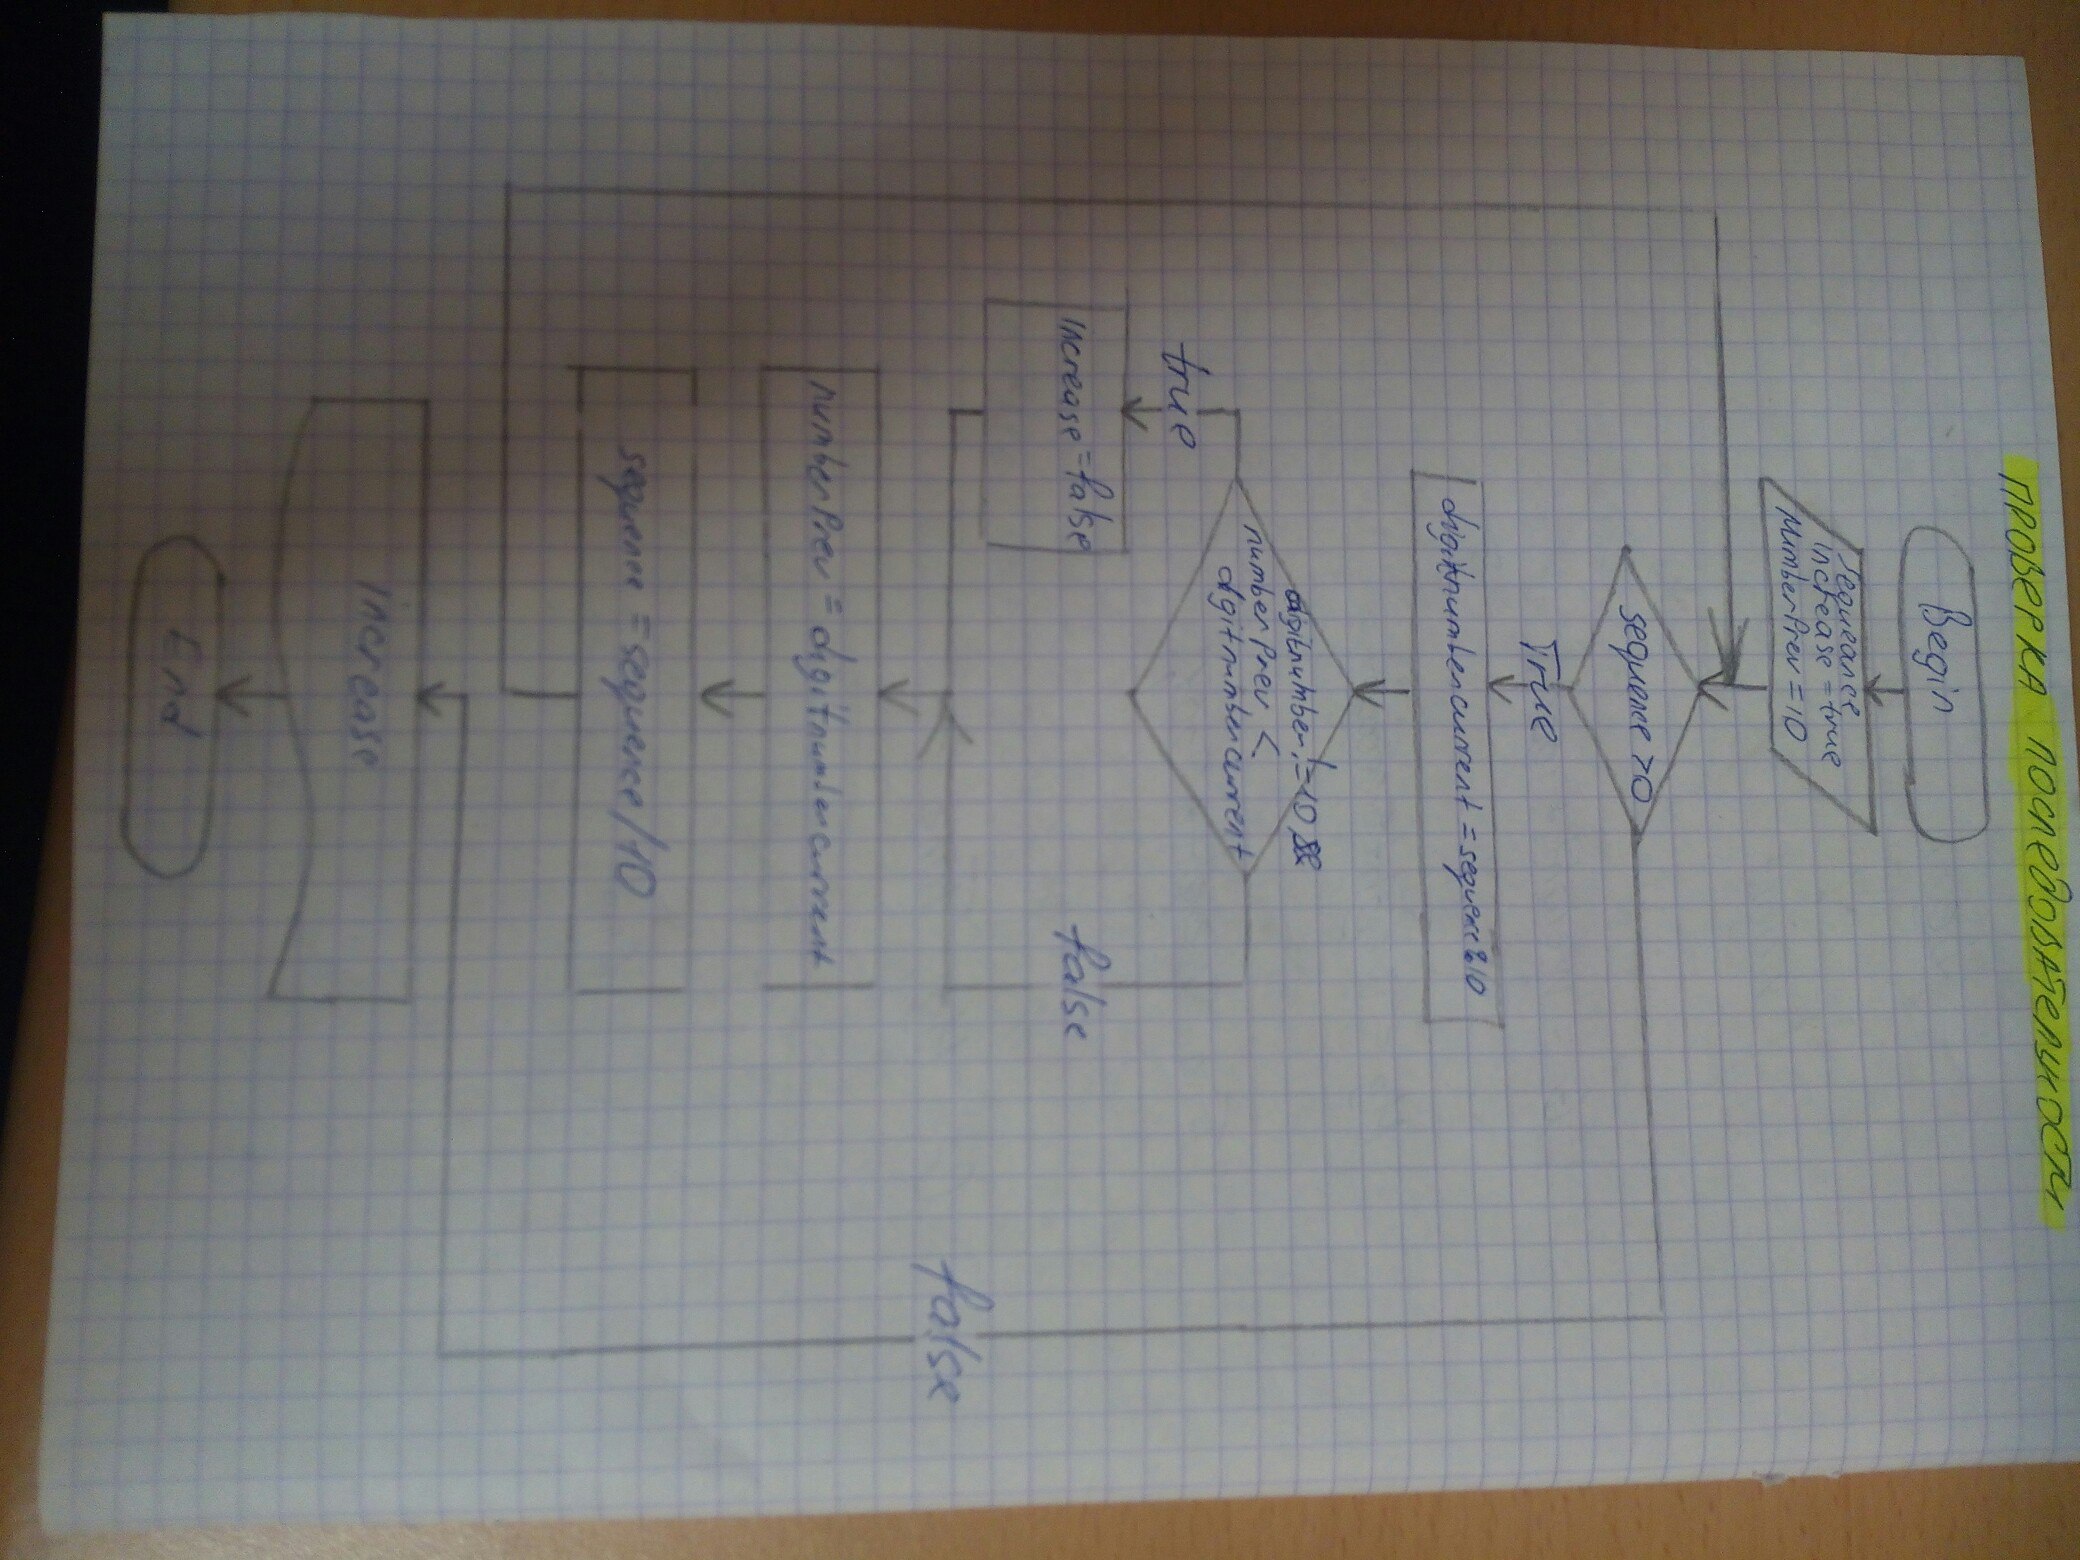 ПРОВЕРКА ПОСЛЕДОВАТЕЛЬНОСТИ
Begin
Sequeance
increase = true
NumberPrev = 10
sequence > 0
True
digitnumbercurrent = sequence % 10
digitnumber != 10 &&
numberPrev <
digitnumbercurrent
true
increase = false
false
false
numberPrev = digitnumbercurrent
sequence = sequence / 10
increase
End